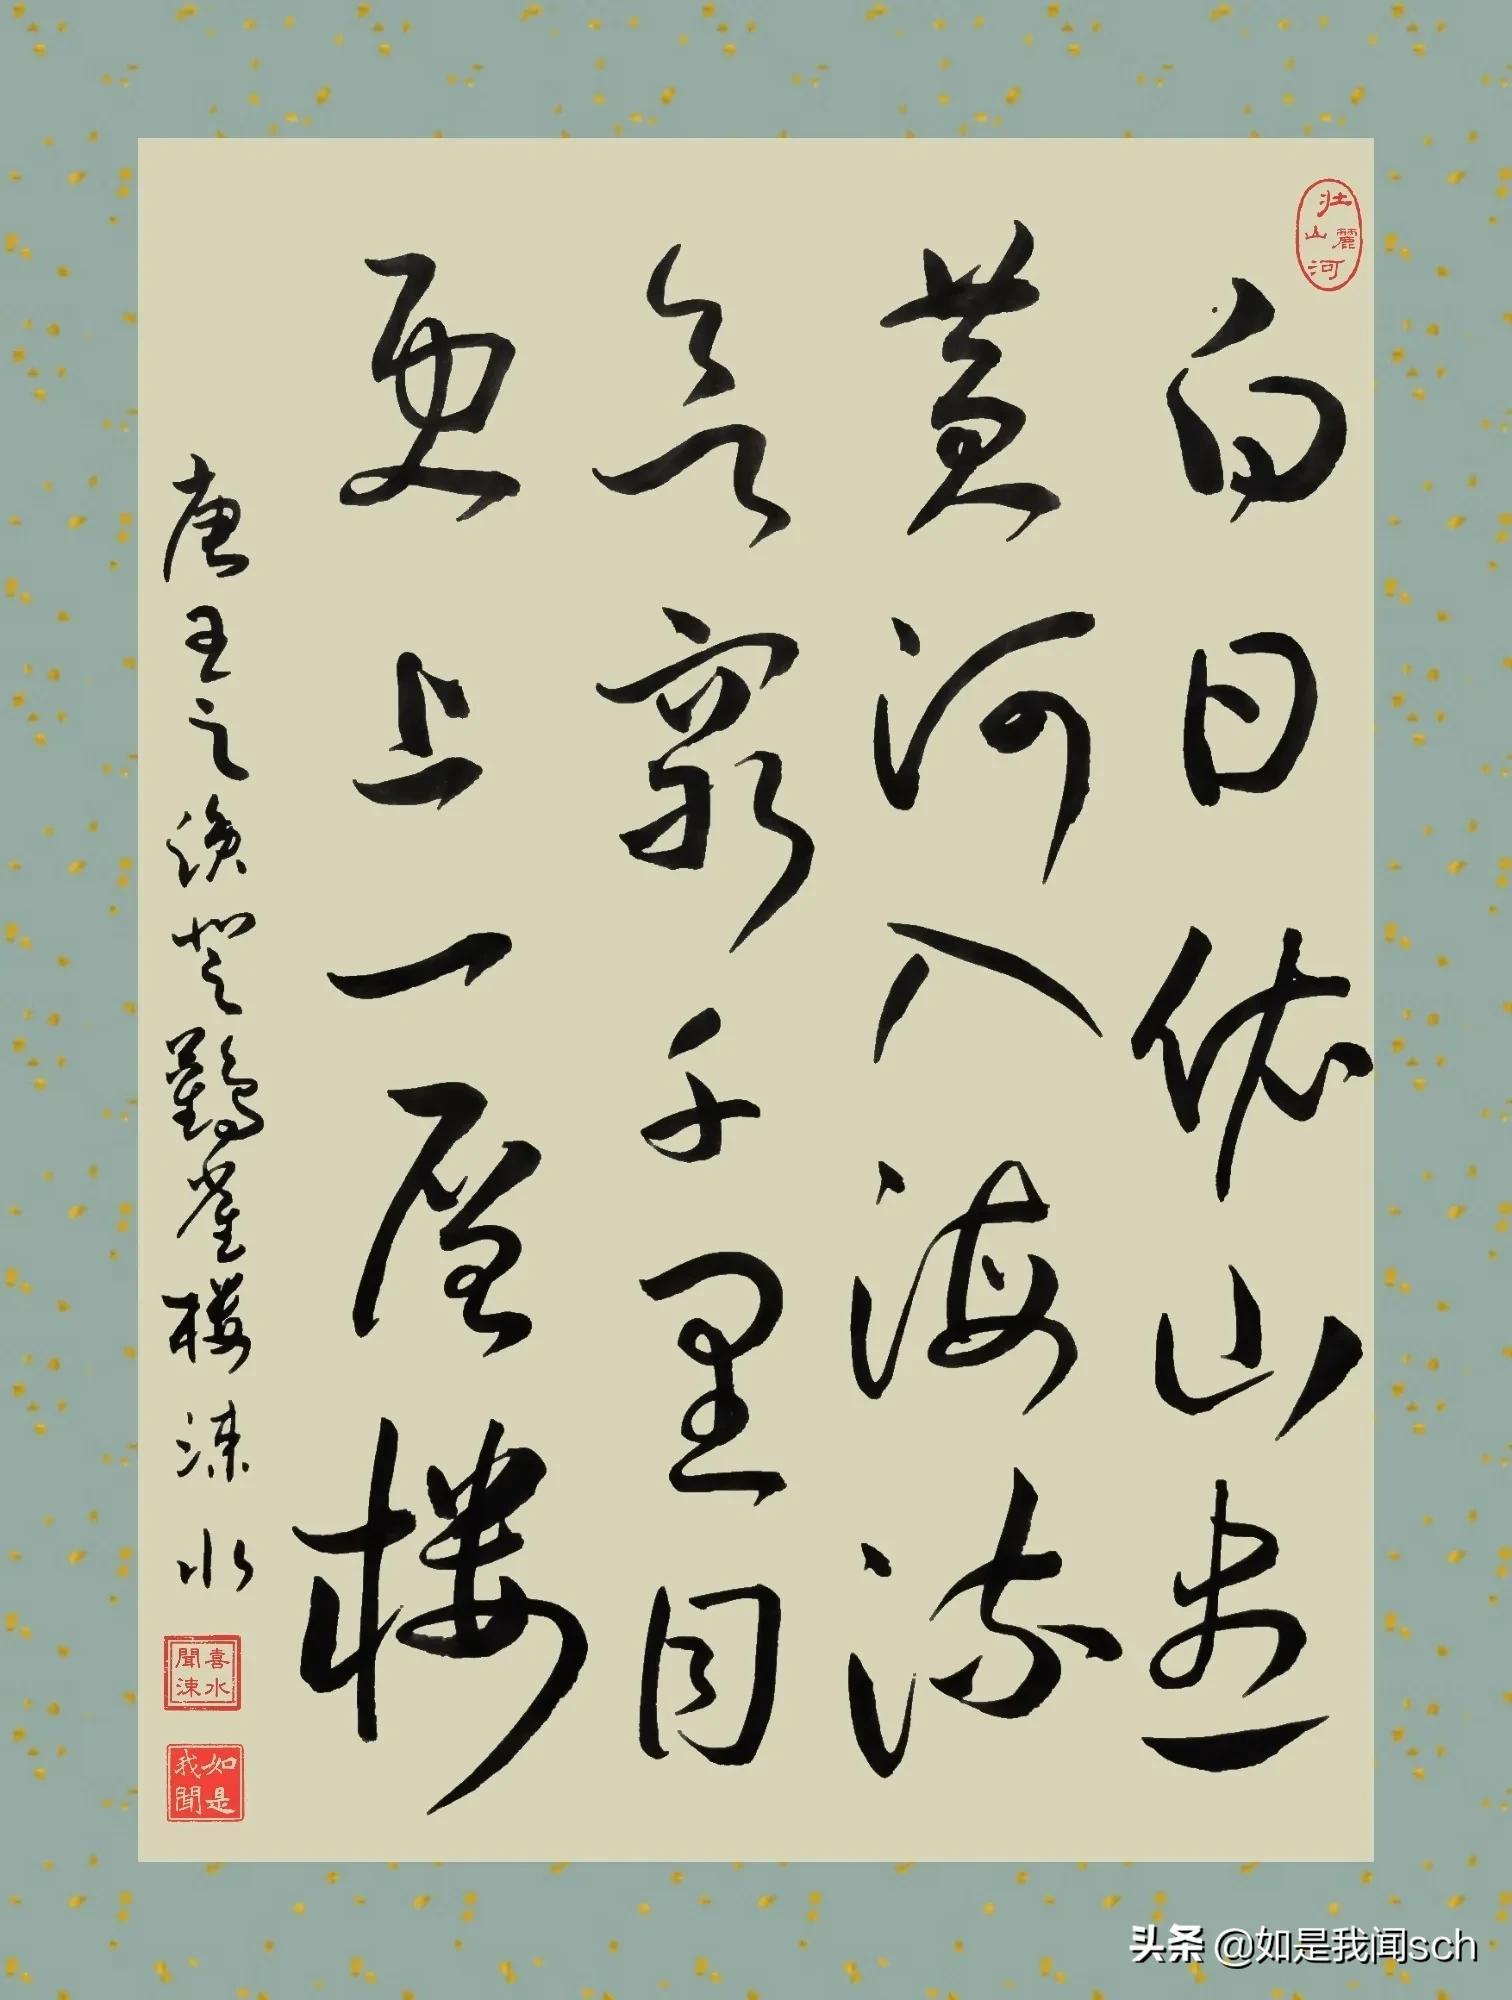 壮麗山河
白日依山盡
黄河入海流
欲窮千里目
更上一層樓
唐王之涣登鸛雀樓 涑水
聞喜涑水
如是我聞
头条 @如是我闻sch